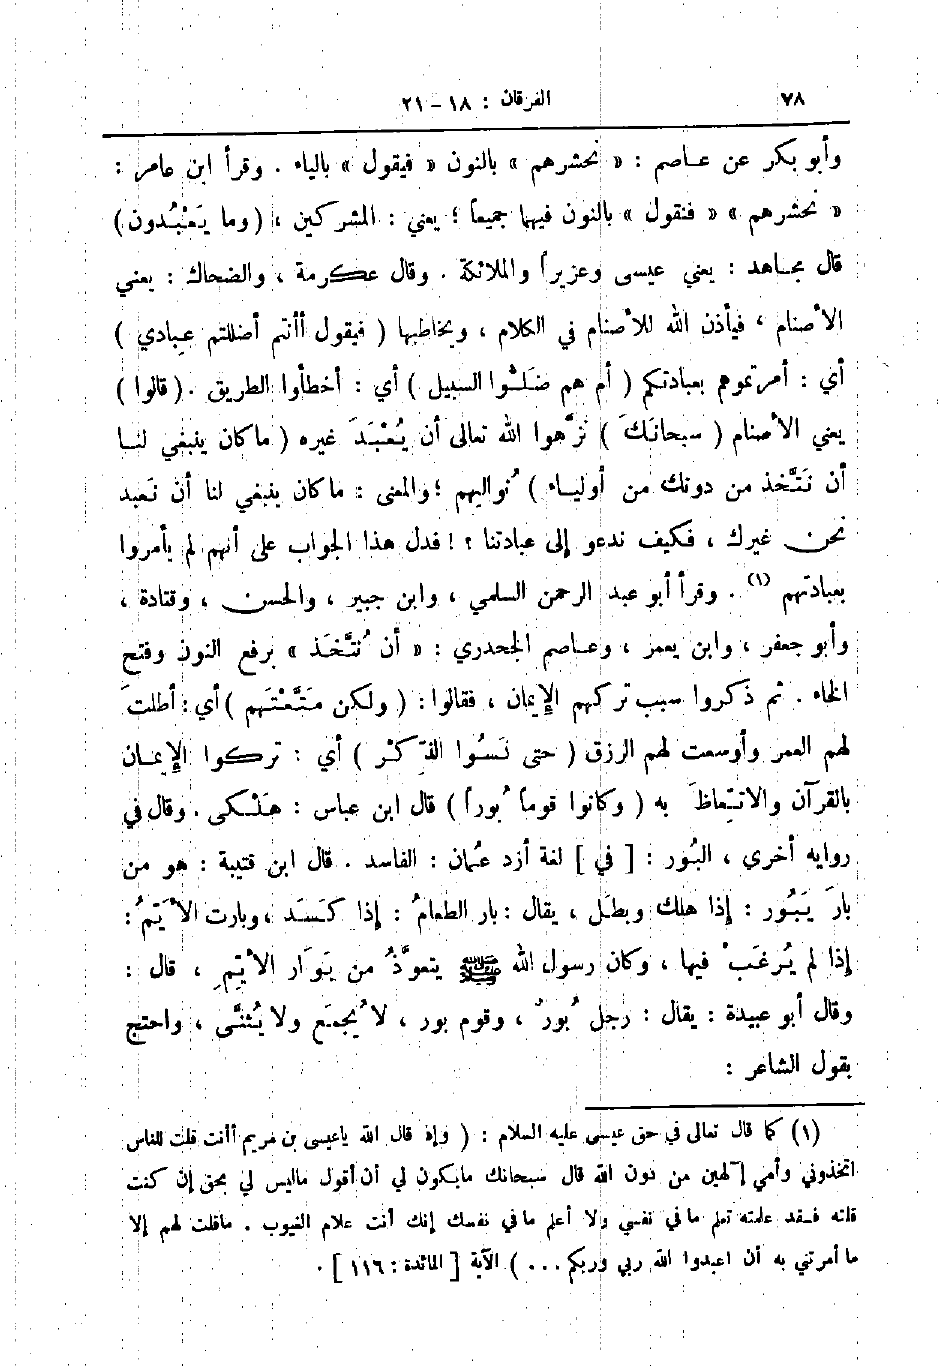 ٧٨
الفرقان : ١٨ – ٢١
وأبو بكر عن عاصم : « نحشرهم » بالنون « فيقول » بالياء . وقرأ ابن عامر :
« نحشرهم » « فنقول » بالنون فيهما جميعاً ؛ يعني : المشركين ، ( وما يَعْبُدون )
قال مجاهد : يعني عيسى وعزيراً والملائكة . وقال عكرمة ، والضحاك : يعني
الأصنام ، فيأذن الله للأصنام في الكلام ، ويخاطبها ( فيقول أأنتم أضللتم عبادي )
أي : أمرتموهم بعبادتكم ( أم هم ضَلُّوا السبيل ) أي : أخطأوا الطريق . ( قالوا )
يعني الأصنام ( سبحانَكَ ) نزَّهوا الله تعالى أن يُعْبَدَ غيره ( ماكان ينبغي لنا
أن نَتَّخذ من دونك من أولياء ) نُواليهم ؛ والمعنى : ماكان ينبغي لنا أن نَعبد
نحن غيرك ، فكيف ندعو إلى عبادتنا ؟ ! فدل هذا الجواب على أنهم لم يأمروا
بعبادتهم (١) . وقرأ أبو عبد الرحمن السلمي ، وابن جبير ، والحسن ، وقتادة ،
وأبو جعفر ، وابن يعمر ، وعاصم الجحدري : « أن نُتَّخَذ » برفع النون وفتح
الخاء . ثم ذكروا سبب تركهم الإيمان ، فقالوا : ( ولكن مَتَّعْتَهم ) أي : أطلتَ
لهم العمر وأوسعت لهم الرزق ( حتى نَسُوا الذِّكْر ) أي : تركوا الإيمان
بالقرآن والاتِّعاظَ به ( وكانوا قوماً بُوراً ) قال ابن عباس : هَلْكى . وقال في
روايه أخرى ، البُور : [ في ] لغة أزد عُمان : الفاسد . قال ابن قتيبة : هو من
بارَ يَبُور : إذا هلك وبطل ، يقال : بار الطعامُ : إذا كَسَد ، وبارت الأيّمُ :
إذا لم يُرغَبْ فيها ، وكان رسول الله ﷺ يتعوَّذُ من بَوَار الأيِّمِ ، قال :
وقال أبو عبيدة : يقال : رجل بُورٌ ، وقوم بور ، لا يُجمَع ولا يُثنَّى ، واحتج
بقول الشاعر :
(١) كما قال تعالى في حق عيسى عليه السلام : ( وإذ قال الله ياعيسى بن مريم أأنت قلت للناس
اتخذوني وأمي إلهين من دون الله قال سبحانك مايكون لي أن أقول ماليس لي بحق إن كنت
قلته فقد علمته تعلم ما في نفسي ولا أعلم ما في نفسك إنك أنت علام الغيوب . ماقلت لهم إلا
ما أمرتني به أن اعبدوا الله ربي وربكم ... ) الآية [ المائدة : ١١٦ ] .